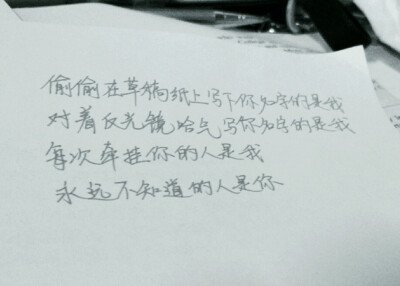 偷偷在草稿纸上写下你名字的是我
对着反光镜哈气写你名字的是我
每次牵挂你的人是我
永远不知道的人是你